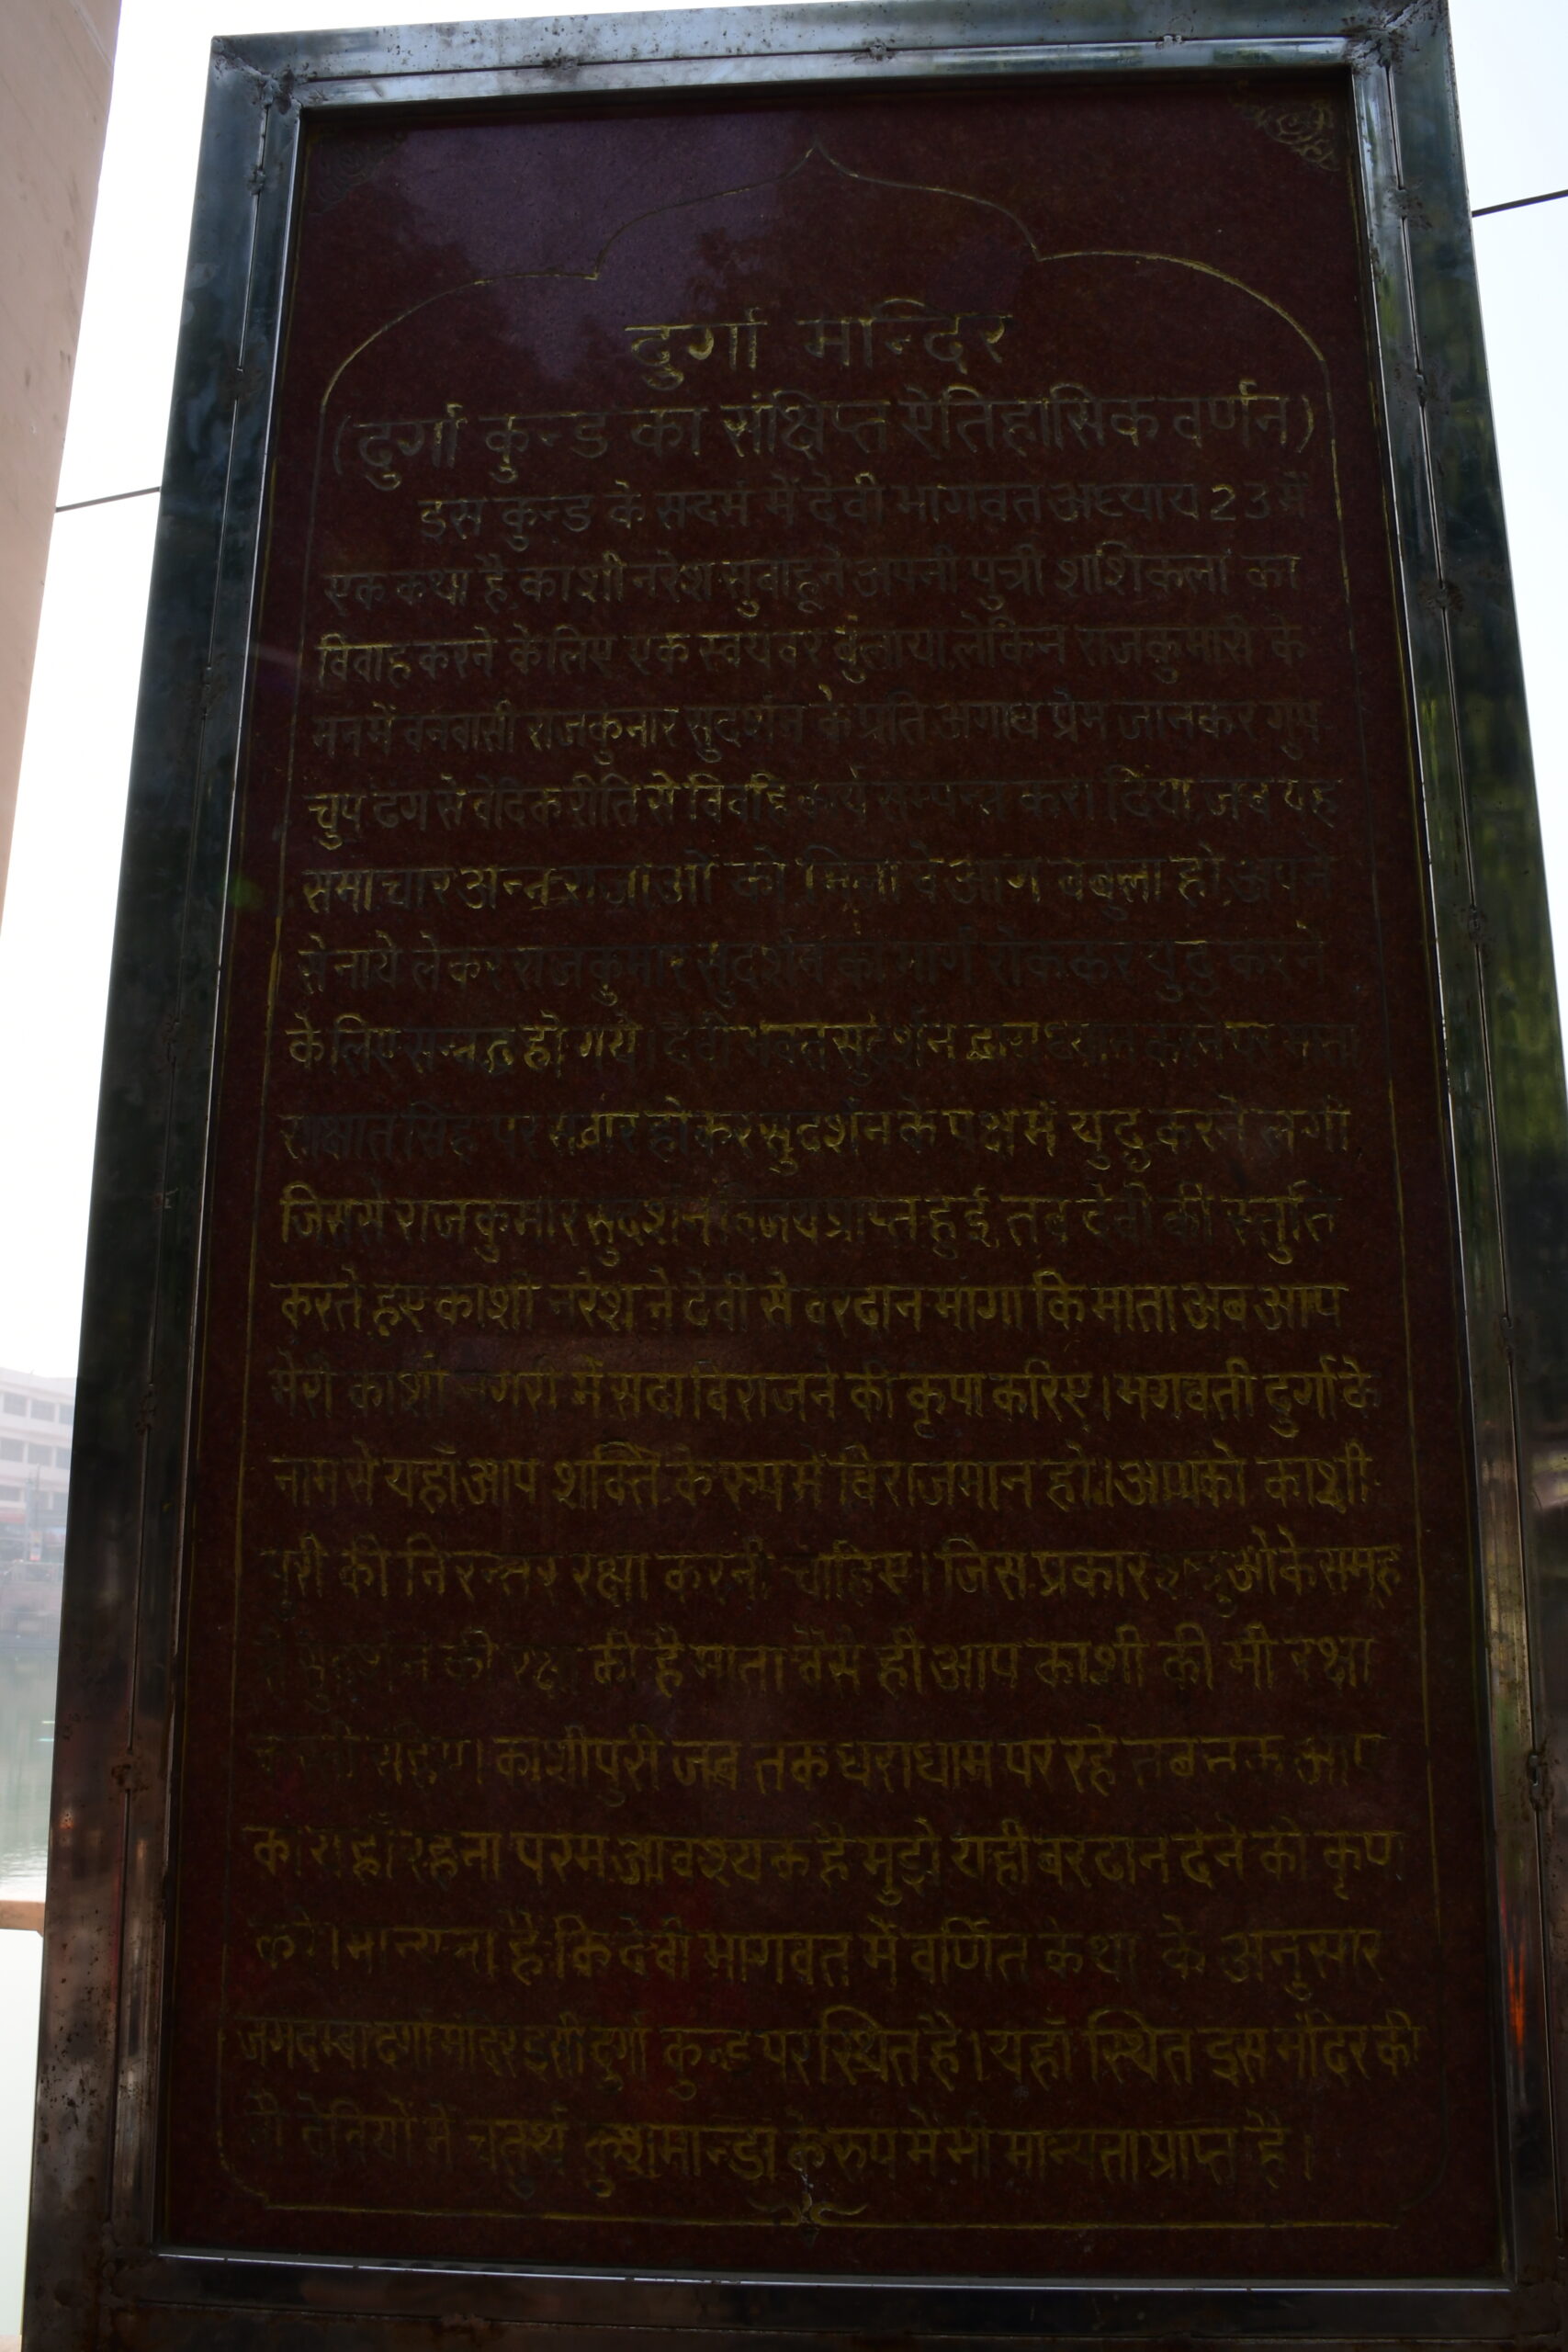 दुर्गा मन्दिर
(दुर्गा कुन्ड का संक्षिप्त ऐतिहासिक वर्णन)
इस कुन्ड के सन्दर्भ में देवी भागवत अध्याय 23 में
एक कथा है काशी नरेश सुबाहू ने अपनी पुत्री शशिकला का
विवाह करने के लिए एक स्वयंवर बुलाया लेकिन राजकुमारी के
मन में वनवासी राजकुमार सुदर्शन के प्रति अगाध प्रेम जानकर गुप
चुप ढंग से वैदिक रीति से विवाह कार्य सम्पन्न करा दिया जब यह
समाचार अन्न राजाओं को मिला वे आग बबुला हो अपने
सेनाये लेकर राजकुमार सुदर्शन का मार्ग रोककर युद्ध करने
के लिए सन्नद्ध हो गये। देवी भक्त सुदर्शन द्वारा ध्यान करने पर
साक्षात सिंह पर सवार होकर सुदर्शन के पक्ष में युद्ध करने लगी
जिससे राजकुमार सुदर्शन विजय प्राप्त हुई तब देवी की स्तुति
करते हुए काशी नरेश ने देवी से वरदान मांगा कि माता अब आप
मेरी काशी नगरी में सदा विराजने की कृपा करिए। भगवती दुर्गा के
नाम से यहाँ आप शक्ति के रूप में विराजमान हो। आपको काशी
पुरी की निरन्तर रक्षा करनी चाहिए। जिस प्रकार शत्रुओ के समूह
से सुदर्शन की रक्षा की है माता वैसे ही आप काशी की भी रक्षा
काशीपुरी जब तक धराधाम पर रहे तब तक आप
का यहाँ रहना परम आवश्यक है मुझे यही वरदान देने की कृपा
करे। मान्यता है कि देवी भागवत में वर्णित कथा के अनुसार
जगदम्बा दुर्गा मंदिर इसी दुर्गा कुन्ड पर स्थित है। यहाँ स्थित इस मंदिर की
नौ देवियों में चतुर्थ कुष्मान्डा के रुप में भी मान्यता प्राप्त है।